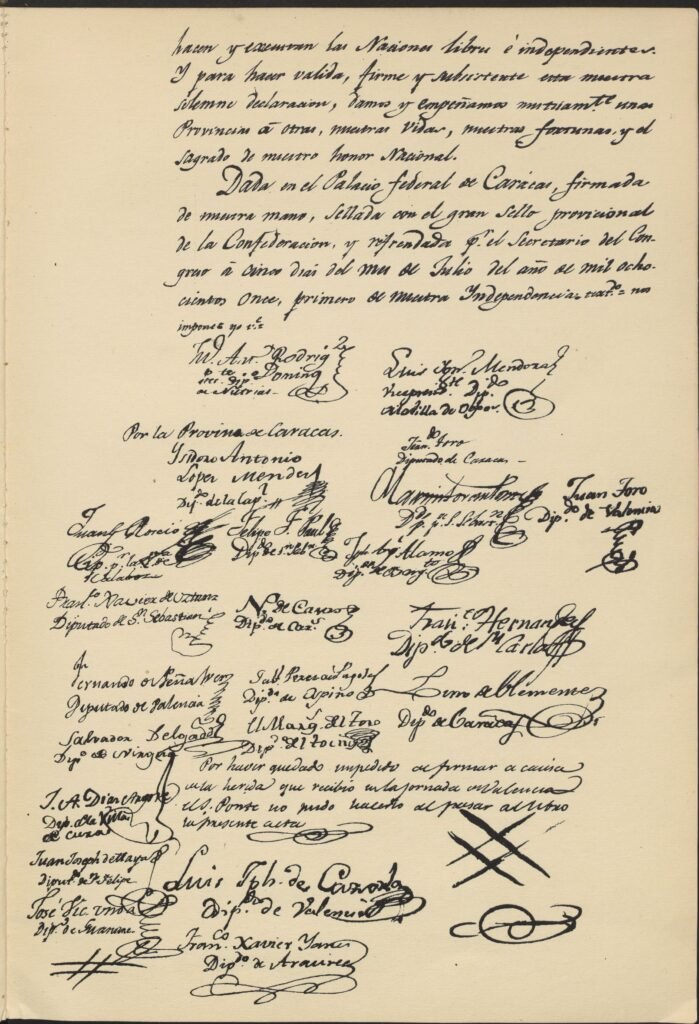 hacen y executan las Naciones libres é independientes.
Y para hacer valida, firme y subsistente esta nuestra
solemne declaracion, damos y empeñamos mutuam.te unas
Provincias á otras, nuestras vidas, nuestras fortunas, y el
sagrado de nuestro honor Nacional.
Dada en el Palacio federal de Carácas, firmada
de nuestra mano, sellada con el gran sello provicional
de la Confederacion, y refrendada p.r el Secretario del Con-
greso á cinco dias del mes de Julio del año de mil ocho-
cientos once, primero de nuestra Independencia =
J. Ant. Rodrig.z
Doming
Luis Mendoza
Vicepresid.te Dip.do
de la Villa de
Por la Provina de Caracas.
Ysidoro Antonio
Lopez Mendez
Dip. de la cap.l
Toro
Diputado de Caracas
Juan Toro
Dip.do de Valencia
Juan G Roscio
Felipe F. Paul
Dip.do de
Calabozo
Alamo
Dip.do de
Fran.co Xavier de Uztariz
Diputado de S.n Sebastian
N. de Castro
Dip.do de Car.s
Fran.co Hernandez
Dip.do de S.n Carlos
Fernando de Peñalver
Diputado de Valencia
Dip.do de Ospino
Lino de Clemente
Dip.do de Caracas
Salvador Delgado
Dip.do de Nirgua
El Marq.s del Toro
Dip.do del Tocuyo
Por haver quedado impedito de firmar a causa
de la herida que recibio en la jornada de Valencia
el S. Ponte no pudo hacerlo al pasar al libro
la presente acta
J. A. Diaz Argote
Dip. de la Villa
de Cura
Juan Joseph de Maya
Diput.do de S. Felipe
Luis Jph. de Cazorla
Dip.do de Valencia
José Vic. Unda
Dip.do de Guanare
Fran.co Xavier Yanes
Dip.do de Araure